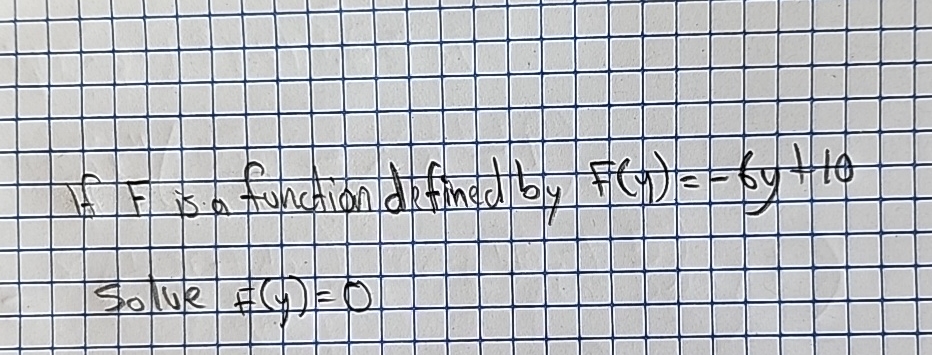 If F is a function defined by F(y)=-6y+10
Solve F(y)=0